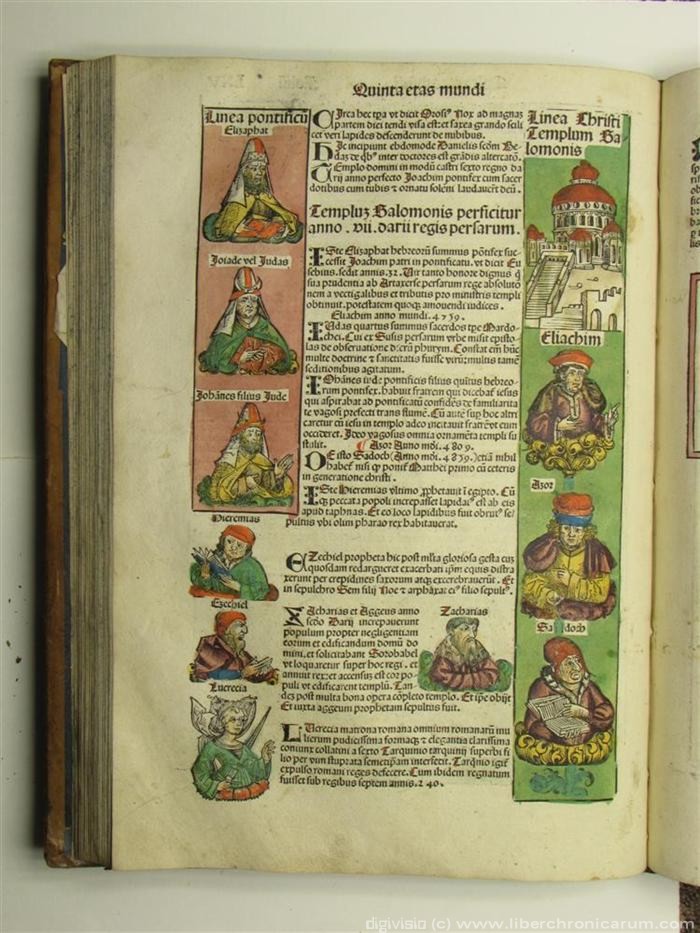 Quinta etas mundi
Linea pontificũ
Elizaphat
Joiade vel Judas
Johãnes filius Jude
Hieremias
Ezechiel
Lucrecia
Circa hec tꝑa vt dicit Orosiꝰ Nox ad magnaz
partem diei tendi visa est: et saxea grando scili
cet veri lapides descenderunt de nubibus.
Hic incipiunt ebdomode Danielis scðm Be
daz de qͥbꝰ inter doctores est grãdis altercatõ.
Templo domini in modũ castri sexto regno da
rij anno perfecto Joachim pontifex cum sacer
dotibus cum tubis ⁊ ornatu solẽni laudauerũt deũ.
Templuz Salomonis perficitur
anno .vii. darii regis persarum.
ISte Elizaphat hebreorũ summus põtifex suc
cessit Joachim patri in pontificatu. vt dicit Eu
sebius. sedit annis.32. Vir tanto honore dignus q̃
sua prudentia ab Artaxerse persarum rege absolutõ
nem a vectigalibus et tributis pro ministris templi
obtinuit. potestatem quoqꝫ amouendi iudices.
Eliachim anno mundi. 4759.
IUdas quartus summus sacerdos tpe Mardo
chei. Cui ex Susis persarum vrbe misit epistο
las de obseruatione dierũ phurym. Constat em̃ hũc
multe doctrine ⁊ sanctitatis fuisse virũ: multis tamẽ
seditionibus agitatum.
IOhãnes iude pontificis filius quĩtus hebreo
rum pontifex. habuit fratrem qui dicebat̃ iesus
qui aspirabat ad pontificatũ confidẽs de familiarita
te vagosi prefecti trans flumẽ. Cũ autẽ suꝑ hoc altri
caretur cũ iesu in templo adeo incitauit fratrẽ vt eum
occideret. Ideo vagosus omnia ornamẽta templi su
stulit.
Azor Anno mõi. 4809.
DE isto Sadoch (Anno mõi. 4859.) etiã nihil
habet̃ nisi qꝫ ponit̃ Matthei primo cũ ceteris
in generatione christi.
ISte Hieremias vltimo ꝓphetauit ĩ egipto. Cũ
qꝫ peccata populi increpasset lapidatꝰ est ab eis
apud taphnas. Et eo loco lapidibus fuit obrutꝰ se
pultus vbi olim pharao rex habitauerat.
EZechiel propheta hic post m̃lta gloriosa gesta cuz
quosdam redargueret exacerbati ipm̃ equis distra
xerunt per crepidines saxorum atqꝫ excerebrauerũt. Et
in sepulchro Sem filij Noe ⁊ arphaxat eiꝰ filio sepultꝰ.
ZAcharias et Aggeus anno
scðo Darij increpauerunt
populum propter negligentiam
eorum et edificandum domũ do
mini, et solicitabant Sorobabel
vt loquaretur super hoc regi. et
annuit rex: et accensus est cor po-
puli vt edificarent templũ. Tan-
des post multa bona opera cõpleto templo. Et ip̃e obijt
Et iuxta aggeum prophetam sepultus fuit.
Zacharias
LUcrecia matrona romana omnium romanarũ mu
lierum pudicissima formaqꝫ ⁊ elegantia clarissima
coniunx collatini a sexto Tarquinio tarquinij superbi fi
lio per vim stuprata semetipam intersecit. Tarq̃nio igit̃
expulso romani reges defecere. Cum ibidem regnatum
fuisset sub regibus septem annis. 240.
Linea Christi
Templum Sa
lomonis
Eliachim
Azor
Sadoch
digivisio (c) www.liberchronicarum.com